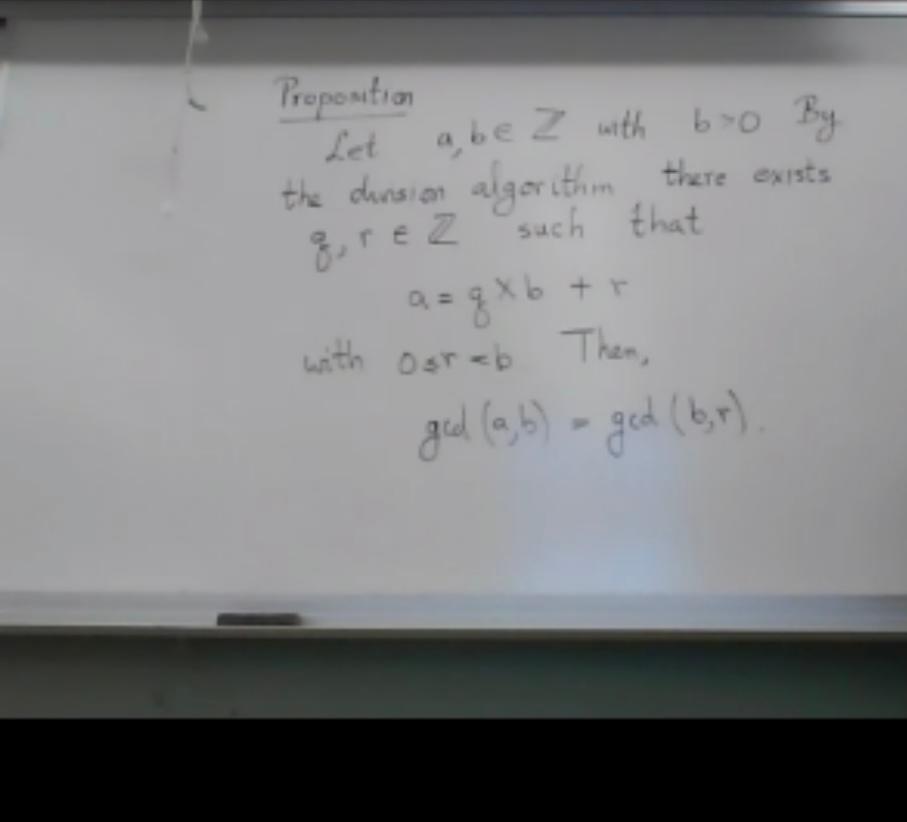 Proposition
Let a, b ∈ ℤ with b > 0 By
the division algorithm there exists
q, r ∈ ℤ such that
a = q × b + r
with 0 ≤ r < b Then,
gcd (a,b) = gcd (b,r).